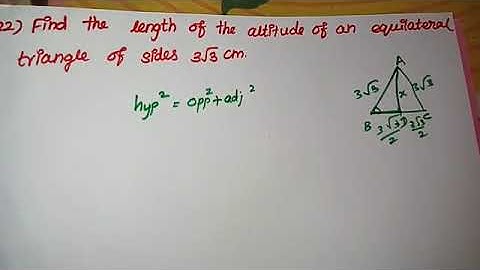 22) Find the length of the altitude of an equilateral
triangle of sides 3√3 cm.
hyp² = opp² + adj²
A
3√3 x 3√3
B 3√3/2 D 3√3/2 C